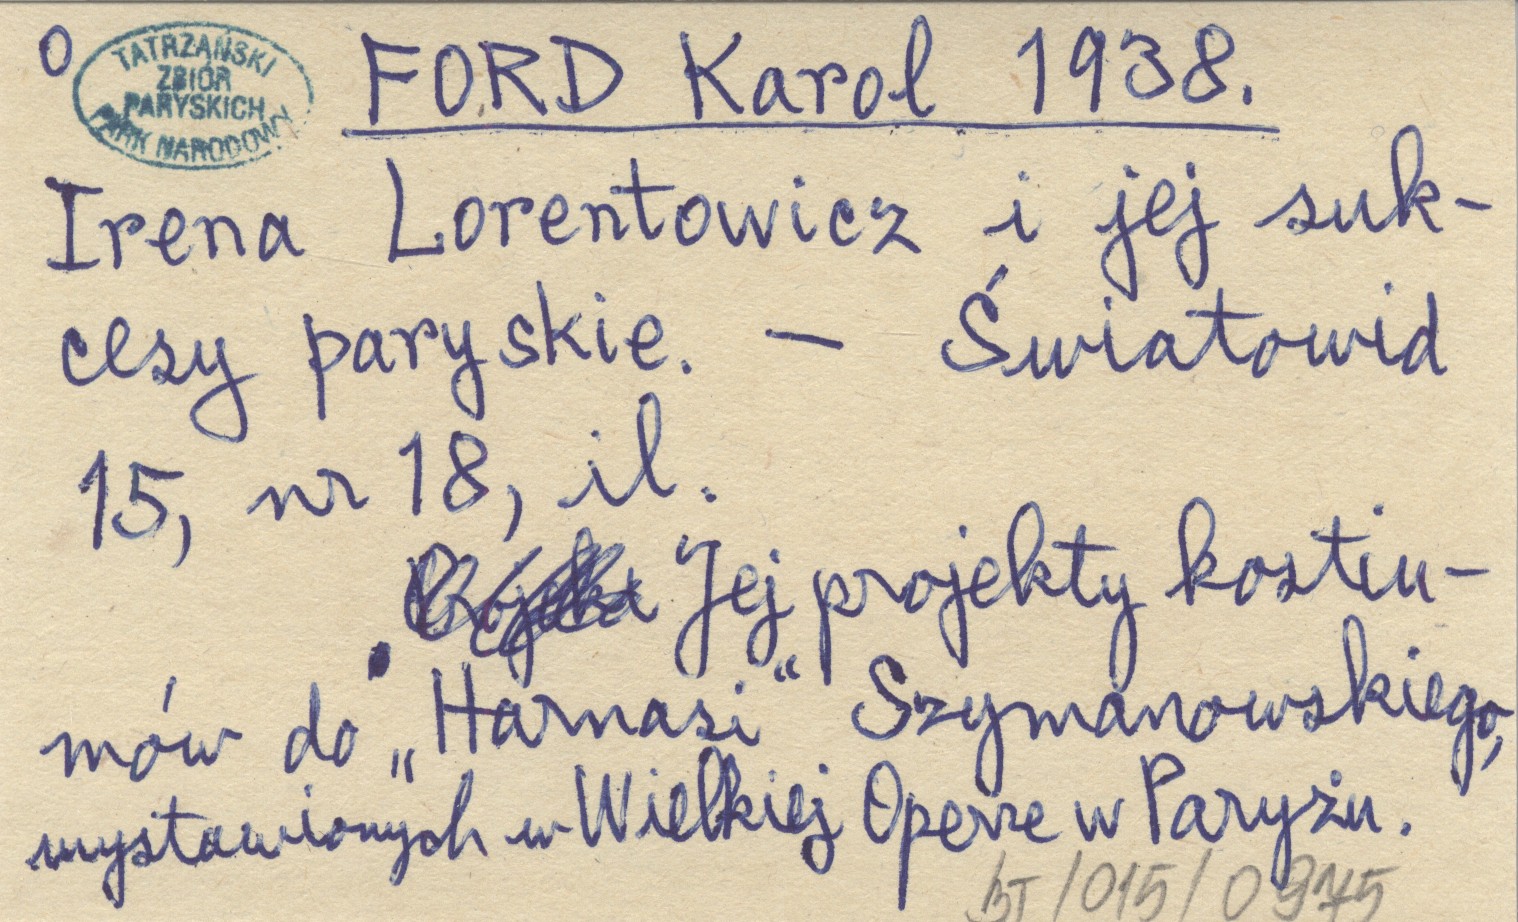 O
TATRZAŃSKI
ZBIÓR
PARYSKICH
PARK NARODOWY
FORD Karol 1938.
Irena Lorentowicz i jej suk-
cesy paryskie. — Światowid
15, nr 18, il.
Jej projekty kostiu-
mów do „Harnasi“ Szymanowskiego,
wystawionych w Wielkiej Operze w Paryżu.
BT/015/0975